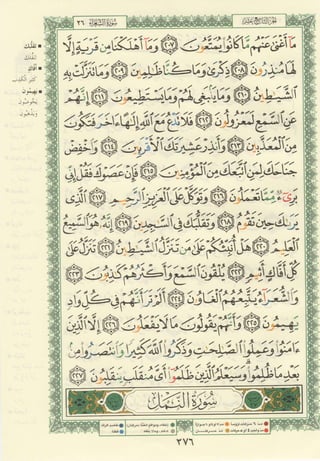 سُورَةُ الشُّعَرَاءِ ٢٦
مَآ أَغْنَىٰ عَنْهُم مَّا كَانُوا۟ يُمَتَّعُونَ ﴿٢٠٧﴾ وَمَآ أَهْلَكْنَا مِن قَرْيَةٍ إِلَّا
لَهَا مُنذِرُونَ ﴿٢٠٨﴾ ذِكْرَىٰ وَمَا كُنَّا ظَـٰلِمِينَ ﴿٢٠٩﴾ وَمَا تَنَزَّلَتْ بِهِ
ٱلشَّيَـٰطِينُ ﴿٢١٠﴾ وَمَا يَنۢبَغِى لَهُمْ وَمَا يَسْتَطِيعُونَ ﴿٢١١﴾ إِنَّهُمْ
عَنِ ٱلسَّمْعِ لَمَعْزُولُونَ ﴿٢١٢﴾ فَلَا تَدْعُ مَعَ ٱللَّهِ إِلَـٰهًا ءَاخَرَ فَتَكُونَ
مِنَ ٱلْمُعَذَّبِينَ ﴿٢١٣﴾ وَأَنذِرْ عَشِيرَتَكَ ٱلْأَقْرَبِينَ ﴿٢١٤﴾ وَٱخْفِضْ
جَنَاحَكَ لِمَنِ ٱتَّبَعَكَ مِنَ ٱلْمُؤْمِنِينَ ﴿٢١٥﴾ فَإِنْ عَصَوْكَ فَقُلْ إِنِّى
بَرِىٓءٌ مِّمَّا تَعْمَلُونَ ﴿٢١٦﴾ وَتَوَكَّلْ عَلَى ٱلْعَزِيزِ ٱلرَّحِيمِ ﴿٢١٧﴾ ٱلَّذِى
يَرَىٰكَ حِينَ تَقُومُ ﴿٢١٨﴾ وَتَقَلُّبَكَ فِى ٱلسَّـٰجِدِينَ ﴿٢١٩﴾ إِنَّهُۥ هُوَ ٱلسَّمِيعُ
ٱلْعَلِيمُ ﴿٢٢٠﴾ هَلْ أُنَبِّئُكُمْ عَلَىٰ مَن تَنَزَّلُ ٱلشَّيَـٰطِينُ ﴿٢٢١﴾ تَنَزَّلُ عَلَىٰ
كُلِّ أَفَّاكٍ أَثِيمٍ ﴿٢٢٢﴾ يُلْقُونَ ٱلسَّمْعَ وَأَكْثَرُهُمْ كَـٰذِبُونَ ﴿٢٢٣﴾
وَٱلشُّعَرَآءُ يَتَّبِعُهُمُ ٱلْغَاوُۥنَ ﴿٢٢٤﴾ أَلَمْ تَرَ أَنَّهُمْ فِى كُلِّ وَادٍ
يَهِيمُونَ ﴿٢٢٥﴾ وَأَنَّهُمْ يَقُولُونَ مَا لَا يَفْعَلُونَ ﴿٢٢٦﴾ إِلَّا ٱلَّذِينَ
ءَامَنُوا۟ وَعَمِلُوا۟ ٱلصَّـٰلِحَـٰتِ وَذَكَرُوا۟ ٱللَّهَ كَثِيرًا وَٱنتَصَرُوا۟ مِنۢ
بَعْدِ مَا ظُلِمُوا۟ وَسَيَعْلَمُ ٱلَّذِينَ ظَلَمُوٓا۟ أَىَّ مُنقَلَبٍ يَنقَلِبُونَ ﴿٢٢٧﴾
سُورَةُ النَّمْلِ
٣٧٦